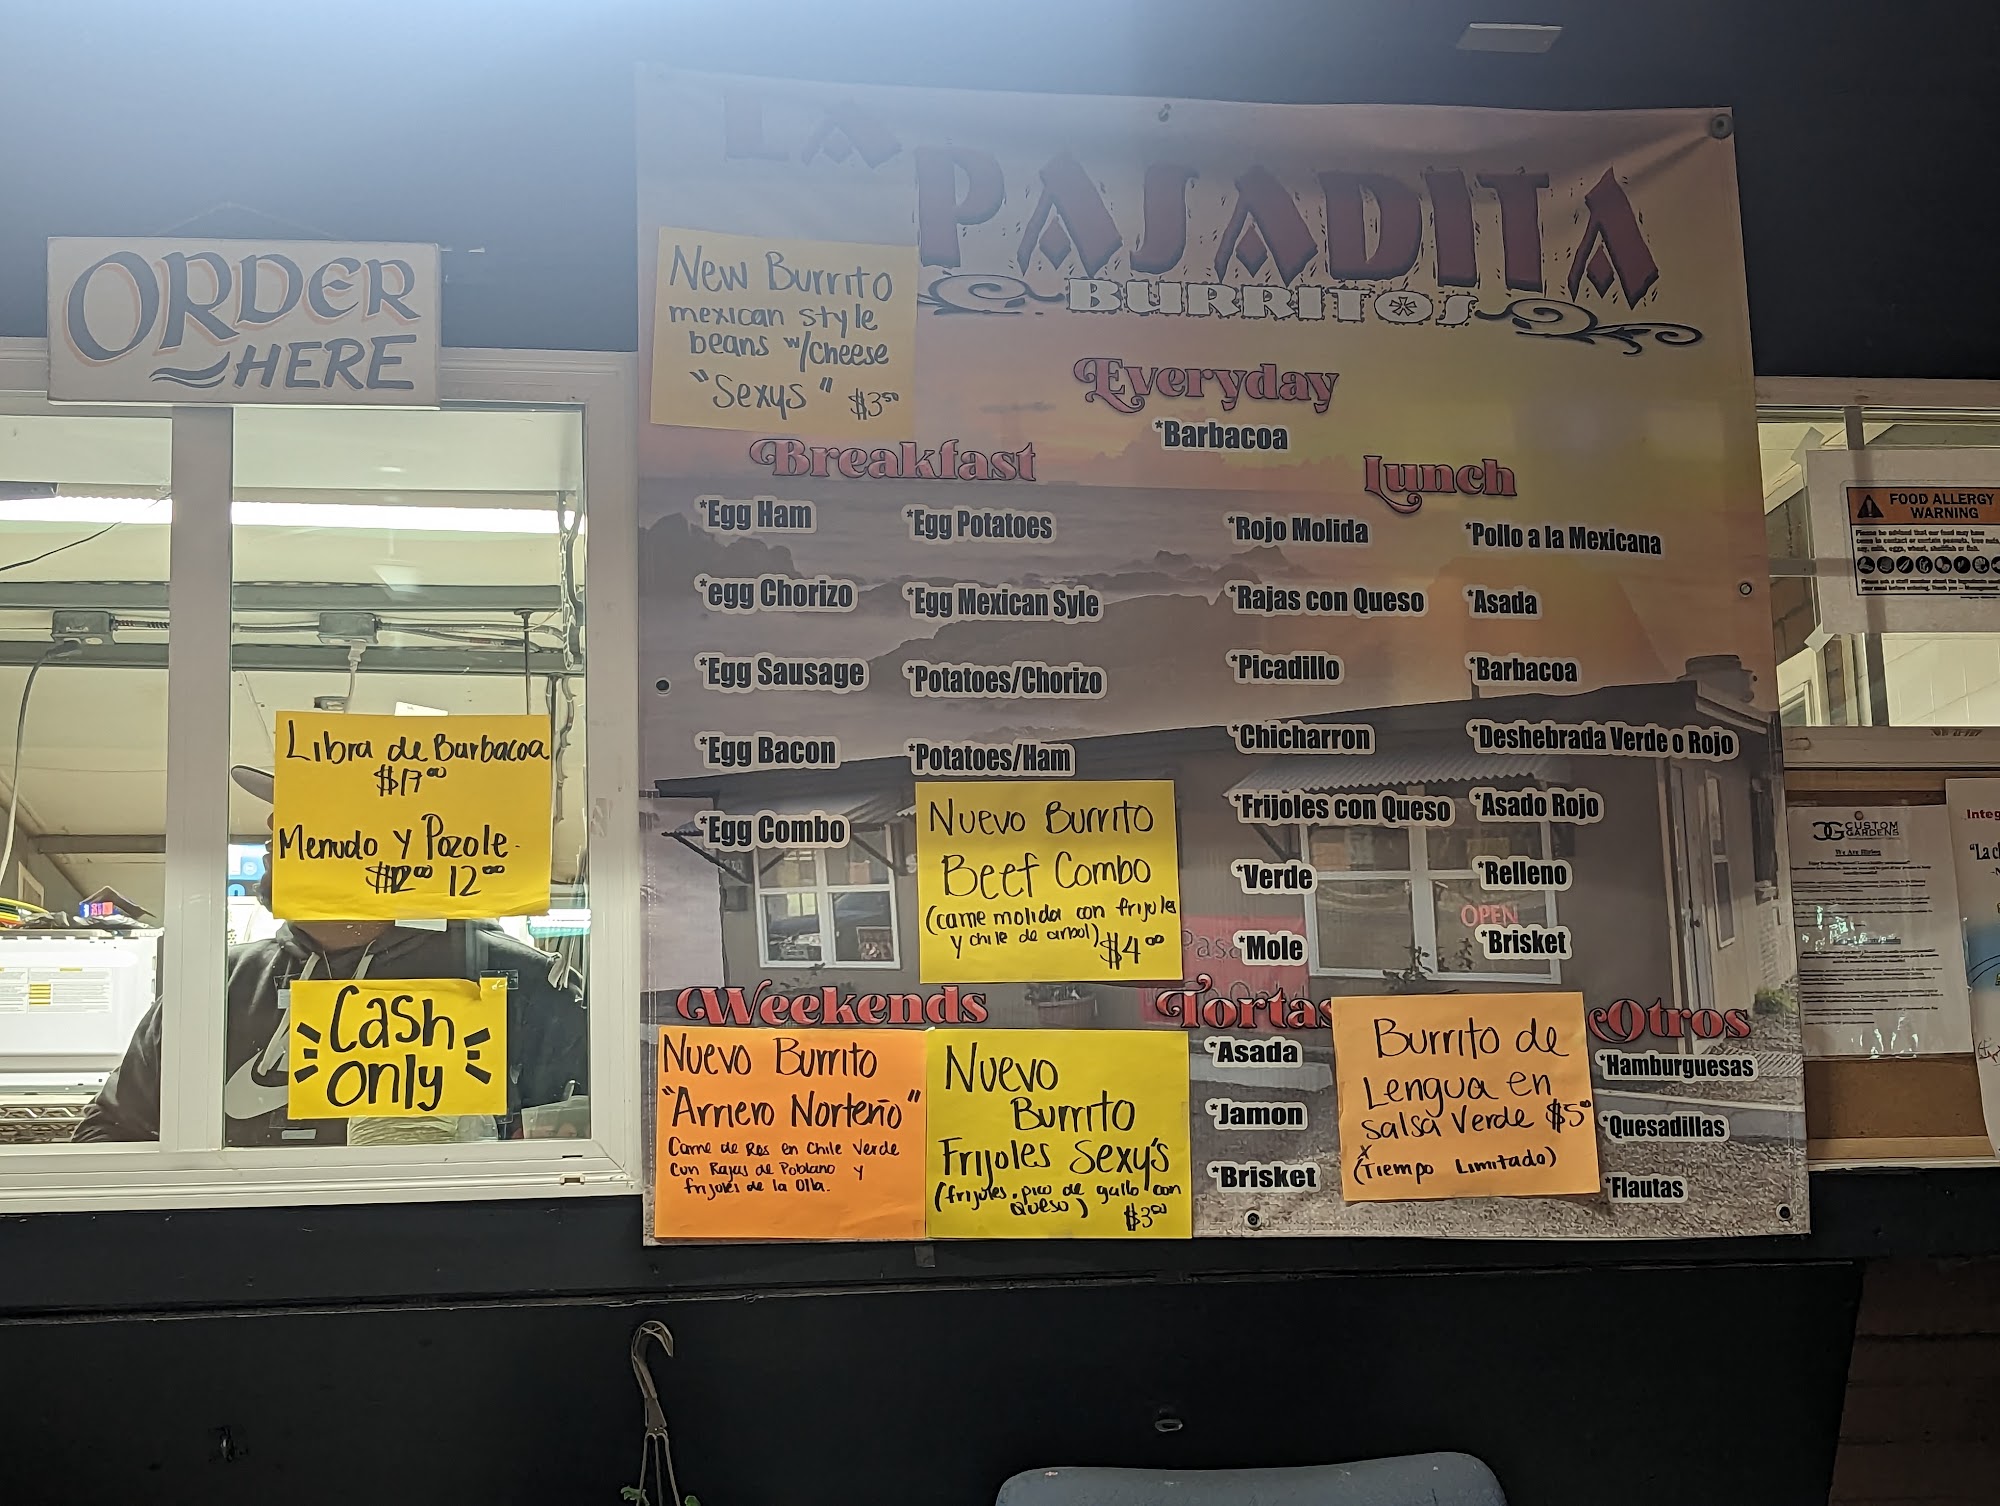 ORDER
HERE
Libra de Barbacoa
$17⁰⁰
Menudo y Pozole.
12⁰⁰
Cash
only
LA PASADITA
BURRITOS
New Burrito
mexican style
beans w/cheese
"Sexys" $3⁵⁰
Everyday
*Barbacoa
Breakfast
*Egg Ham
*egg Chorizo
*Egg Sausage
*Egg Bacon
*Egg Combo
*Egg Potatoes
*Egg Mexican Syle
*Potatoes/Chorizo
*Potatoes/Ham
Nuevo Burrito
Beef Combo
(carne molida con frijoles
y chile de arbol) $4⁰⁰
Lunch
*Rojo Molida
*Rajas con Queso
*Picadillo
*Chicharron
*Frijoles con Queso
*Verde
*Mole
*Pollo a la Mexicana
*Asada
*Barbacoa
*Deshebrada Verde o Rojo
*Asado Rojo
*Relleno
OPEN
*Brisket
Weekends
Nuevo Burrito
"Arriero Norteño"
Carne de Res en Chile Verde
Con Rajas de Poblano y
frijoles de la Olla.
Nuevo
Burrito
Frijoles Sexy's
(frijoles, pico de gallo con
queso)
Tortas
*Asada
*Jamon
*Brisket
Burrito de
Lengua en
Salsa Verde $5⁰⁰
x
(Tiempo Limitado)
Otros
*Hamburguesas
*Quesadillas
*Flautas
FOOD ALLERGY
WARNING
CG CUSTOM
GARDENS
We Are Hiring